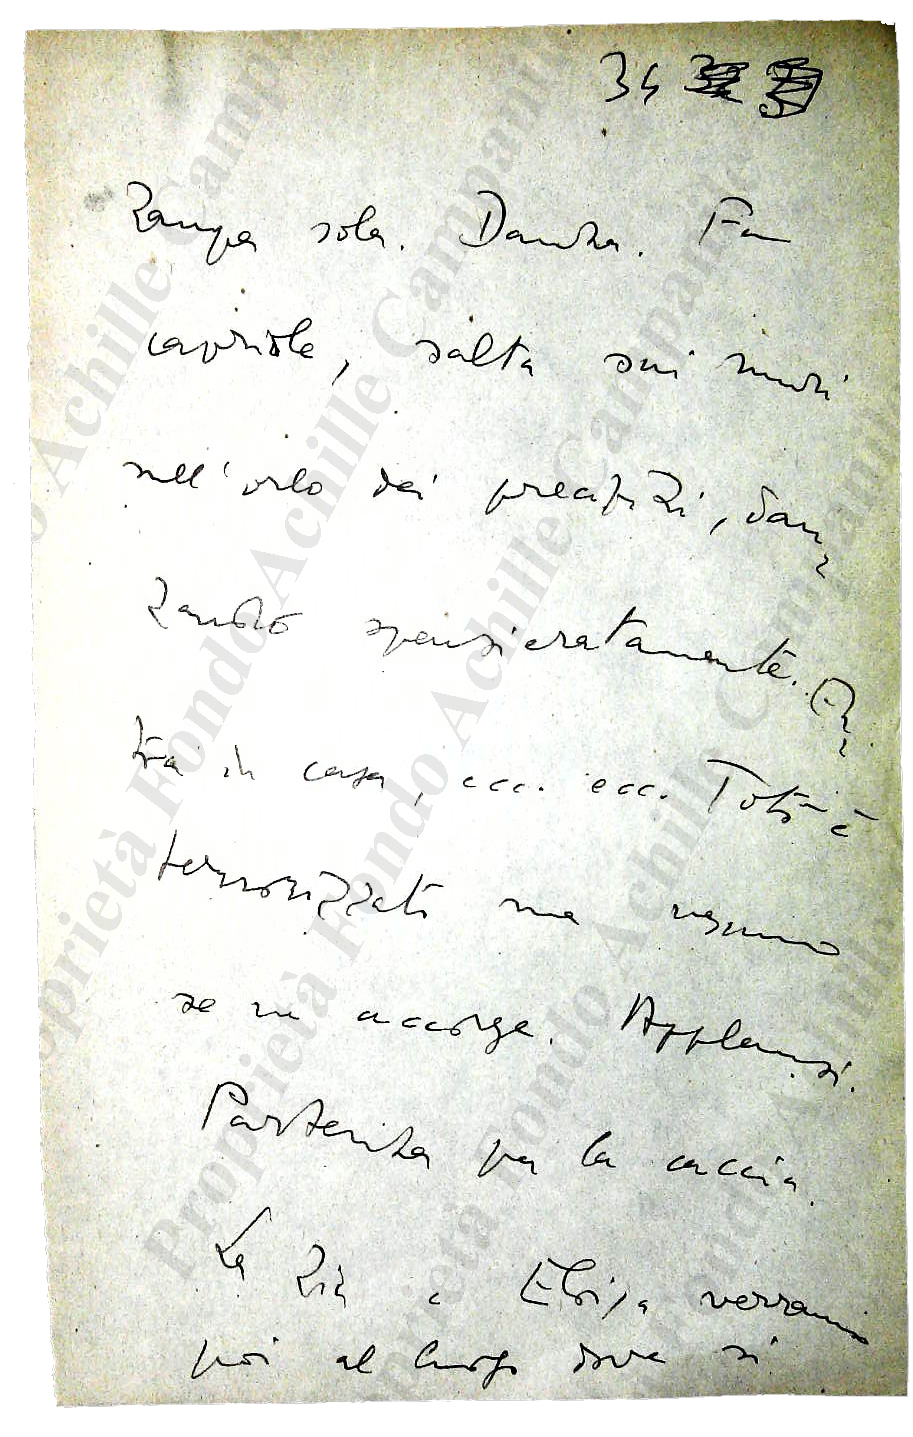 34
zampa sola. Danza. Fa
capriole, salta sui muri
sull'orlo dei precipizi, dan-
zando spensieratamente. En-
tra in casa, ecc. ecc. Totò è
terrorizzato ma nessuno
se ne accorge. Applausi.
Partenza per la caccia.
La zia e Eloisa verranno
poi al luogo dove si
Proprietà Fondo Achille Campanile